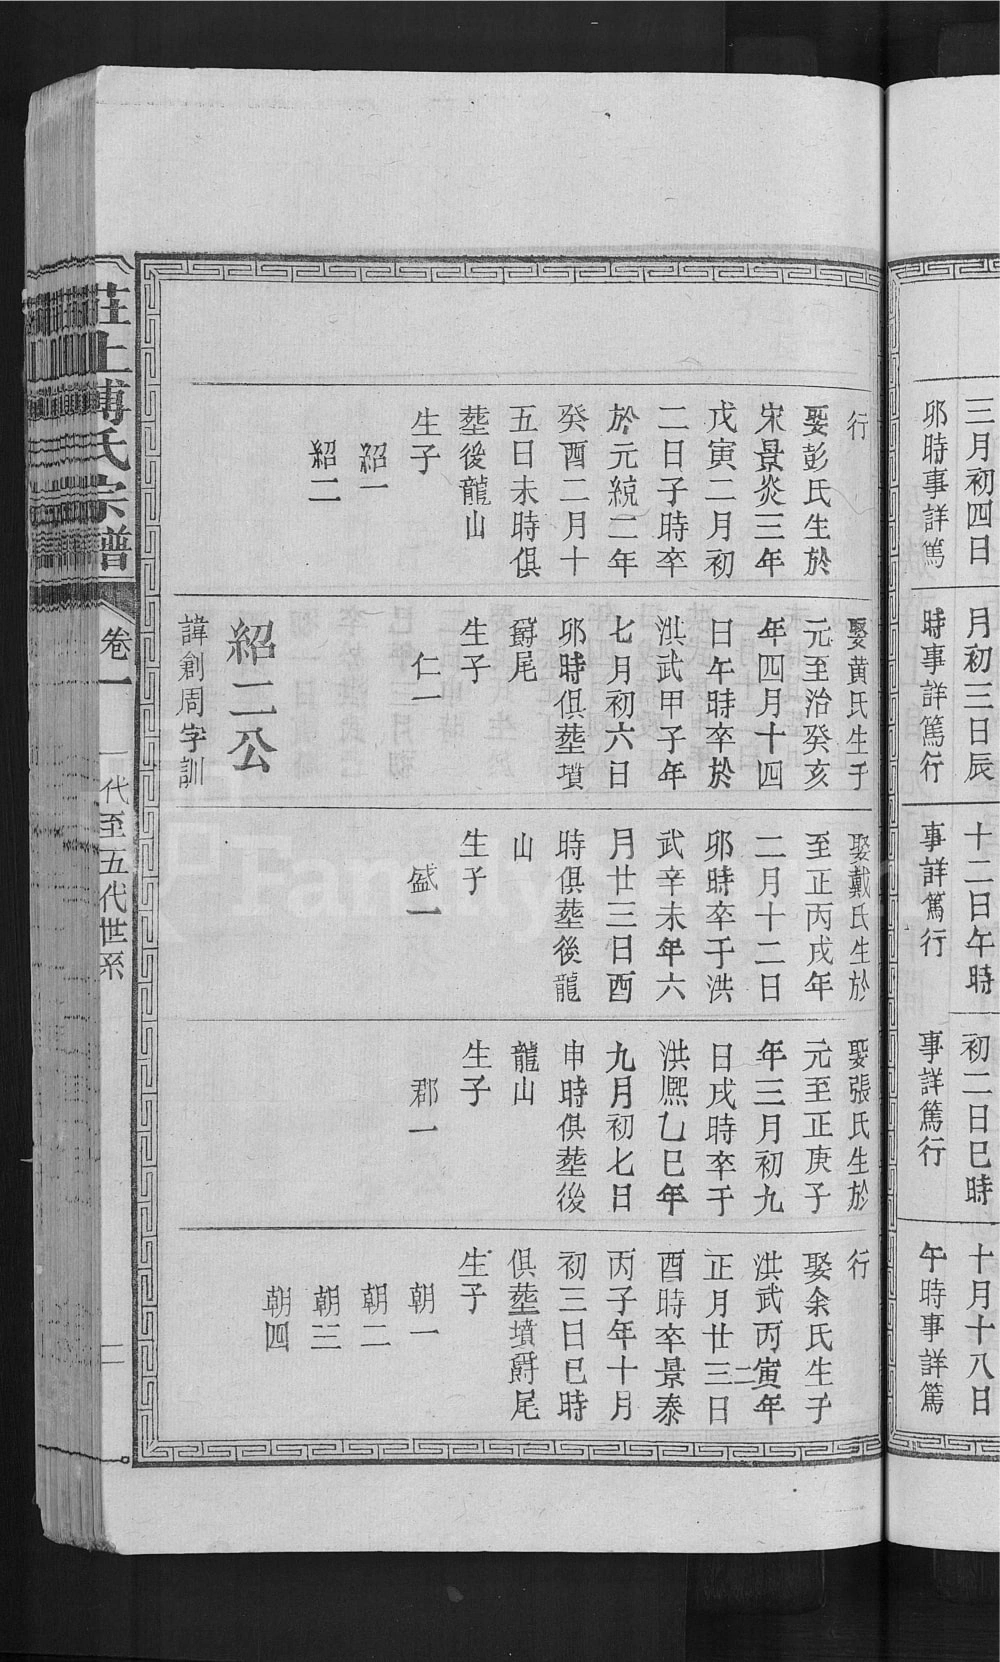 三月初四日
卯時事詳篤
月初三日辰
時事詳篤行
十二日午時
事詳篤行
初二日巳時
事詳篤行
十月十八日
午時事詳篤
行
娶彭氏生於
宋景炎三年
戊寅二月初
二日子時卒
於元統二年
癸酉二月十
五日未時俱
塟後龍山
生子
紹一
紹二
娶黄氏生于
元至治癸亥
年四月十四
日午時卒於
洪武甲子年
七月初六日
卯時俱塟墳
爵尾
生子
仁一
紹二公
諱創周字訓
娶戴氏生於
至正丙戌年
二月十二日
卯時卒于洪
武辛未年六
月廿三日酉
時俱塟後龍
山
生子
盛一
娶張氏生於
元至正庚子
年三月初九
日戌時卒于
洪熙乙巳年
九月初七日
申時俱塟後
龍山
生子
郡一
行
娶余氏生于
洪武丙寅年
正月廿三日
酉時卒景泰
丙子年十月
初三日巳時
俱塟墳爵尾
生子
朝一
朝二
朝三
朝四
莊上傅氏宗譜
卷一
一代至五代世系
二